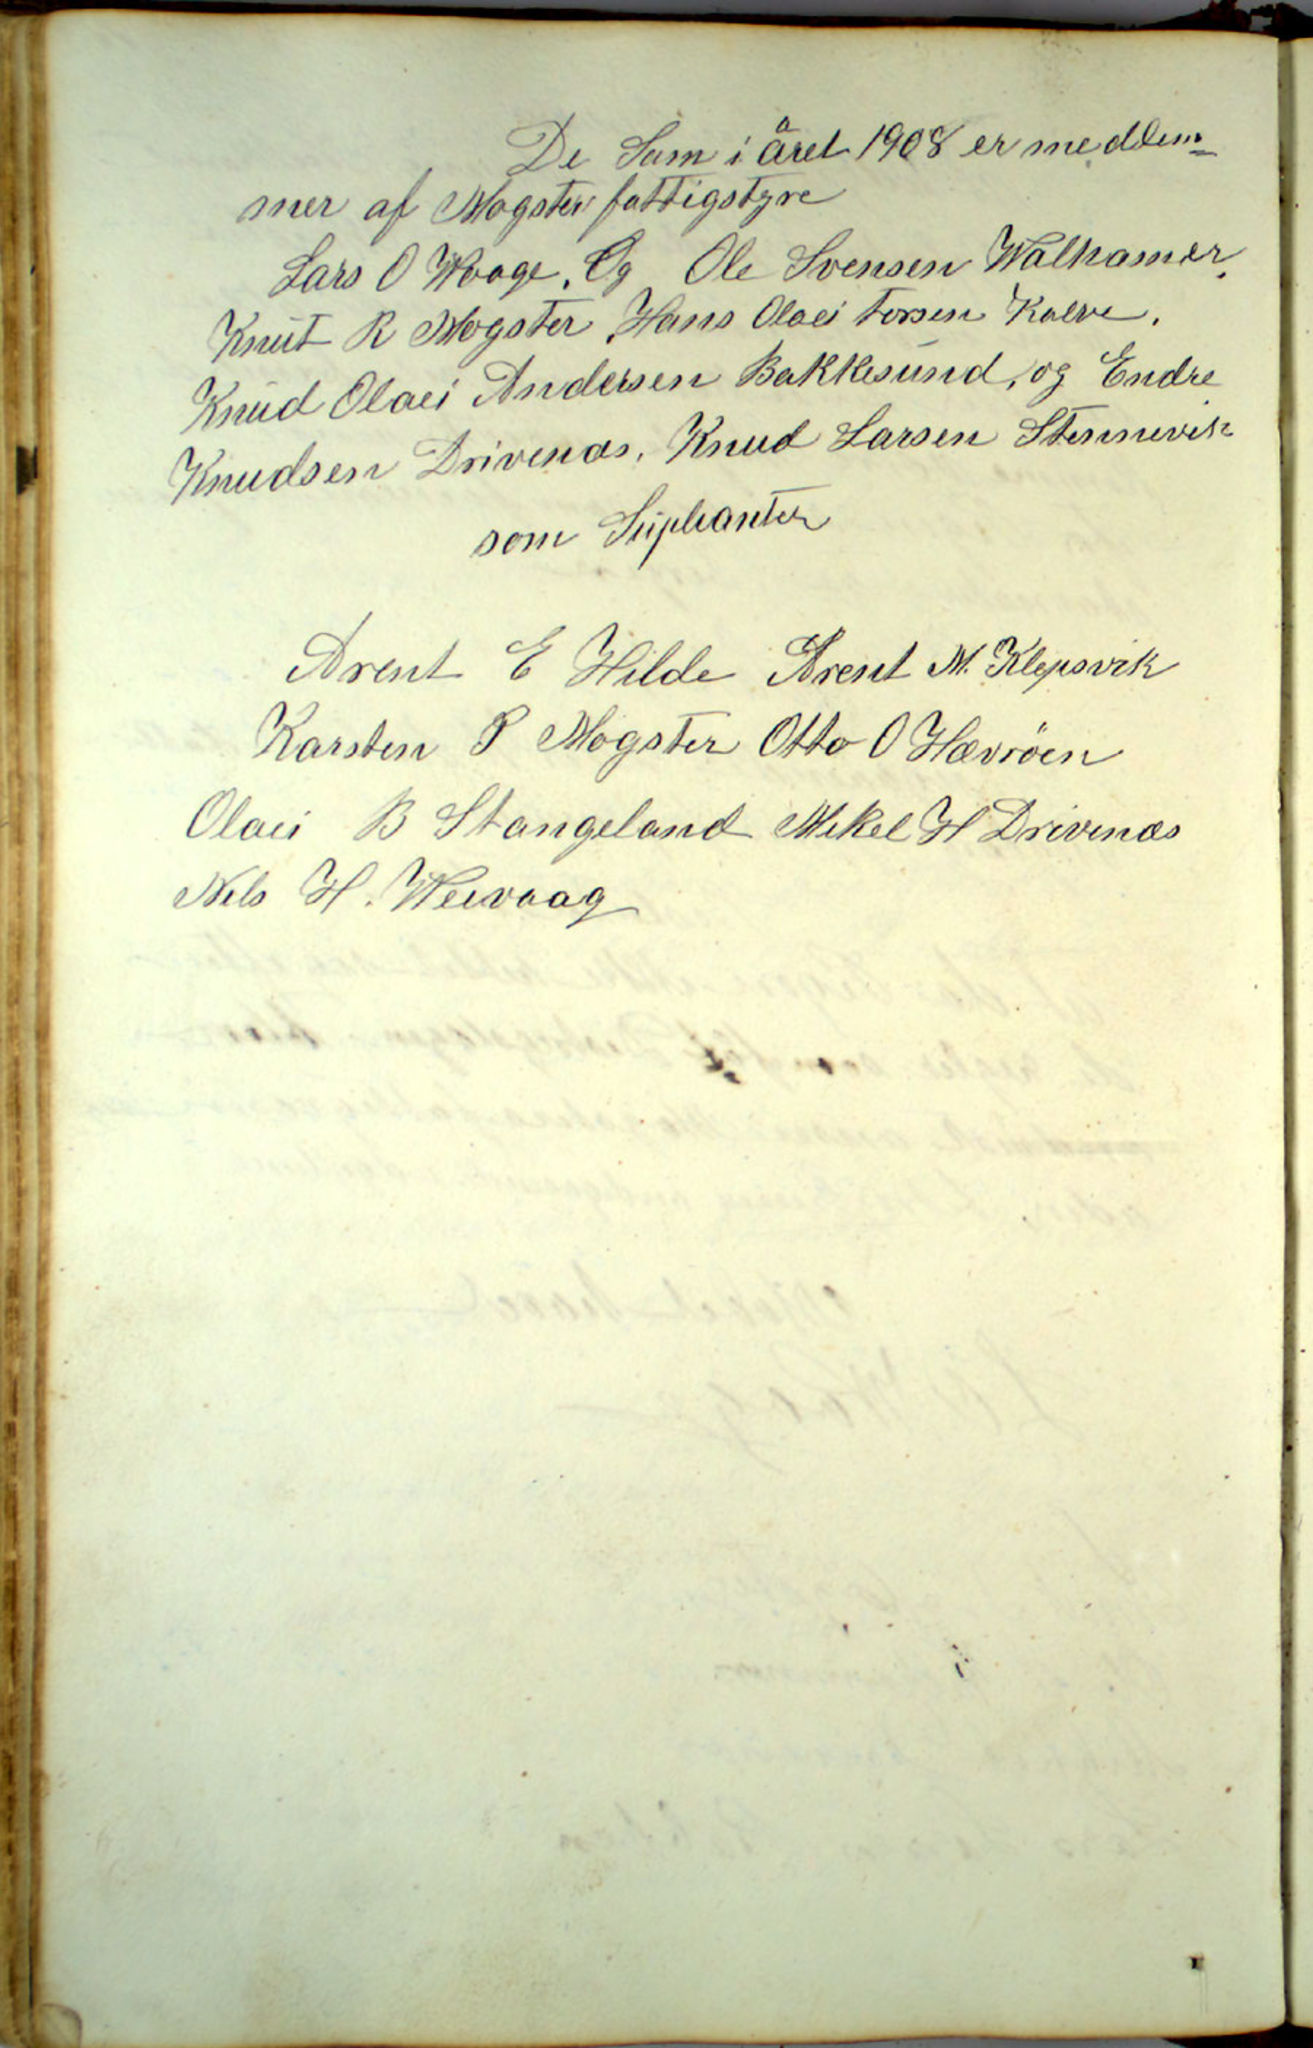 De Som i året 1908 er medlem=
mer af Møgster fattigstyre
Lars O Waage. Og Ole Svensen Walhamer.
Knut R Møgster, Hans Olai torsen Kalve.
Knud Olai Andersen Bakkesund, og Endre
Knudsen Drivenæs, Knud Larsen Stennevik
som Suplianter
Arent E Hilde Arent M. Klepsvik
Karsten P Møgster Otto O Hævröen
Olai B Stangeland Mikel H Drivenæs
Nels H. Weivaag